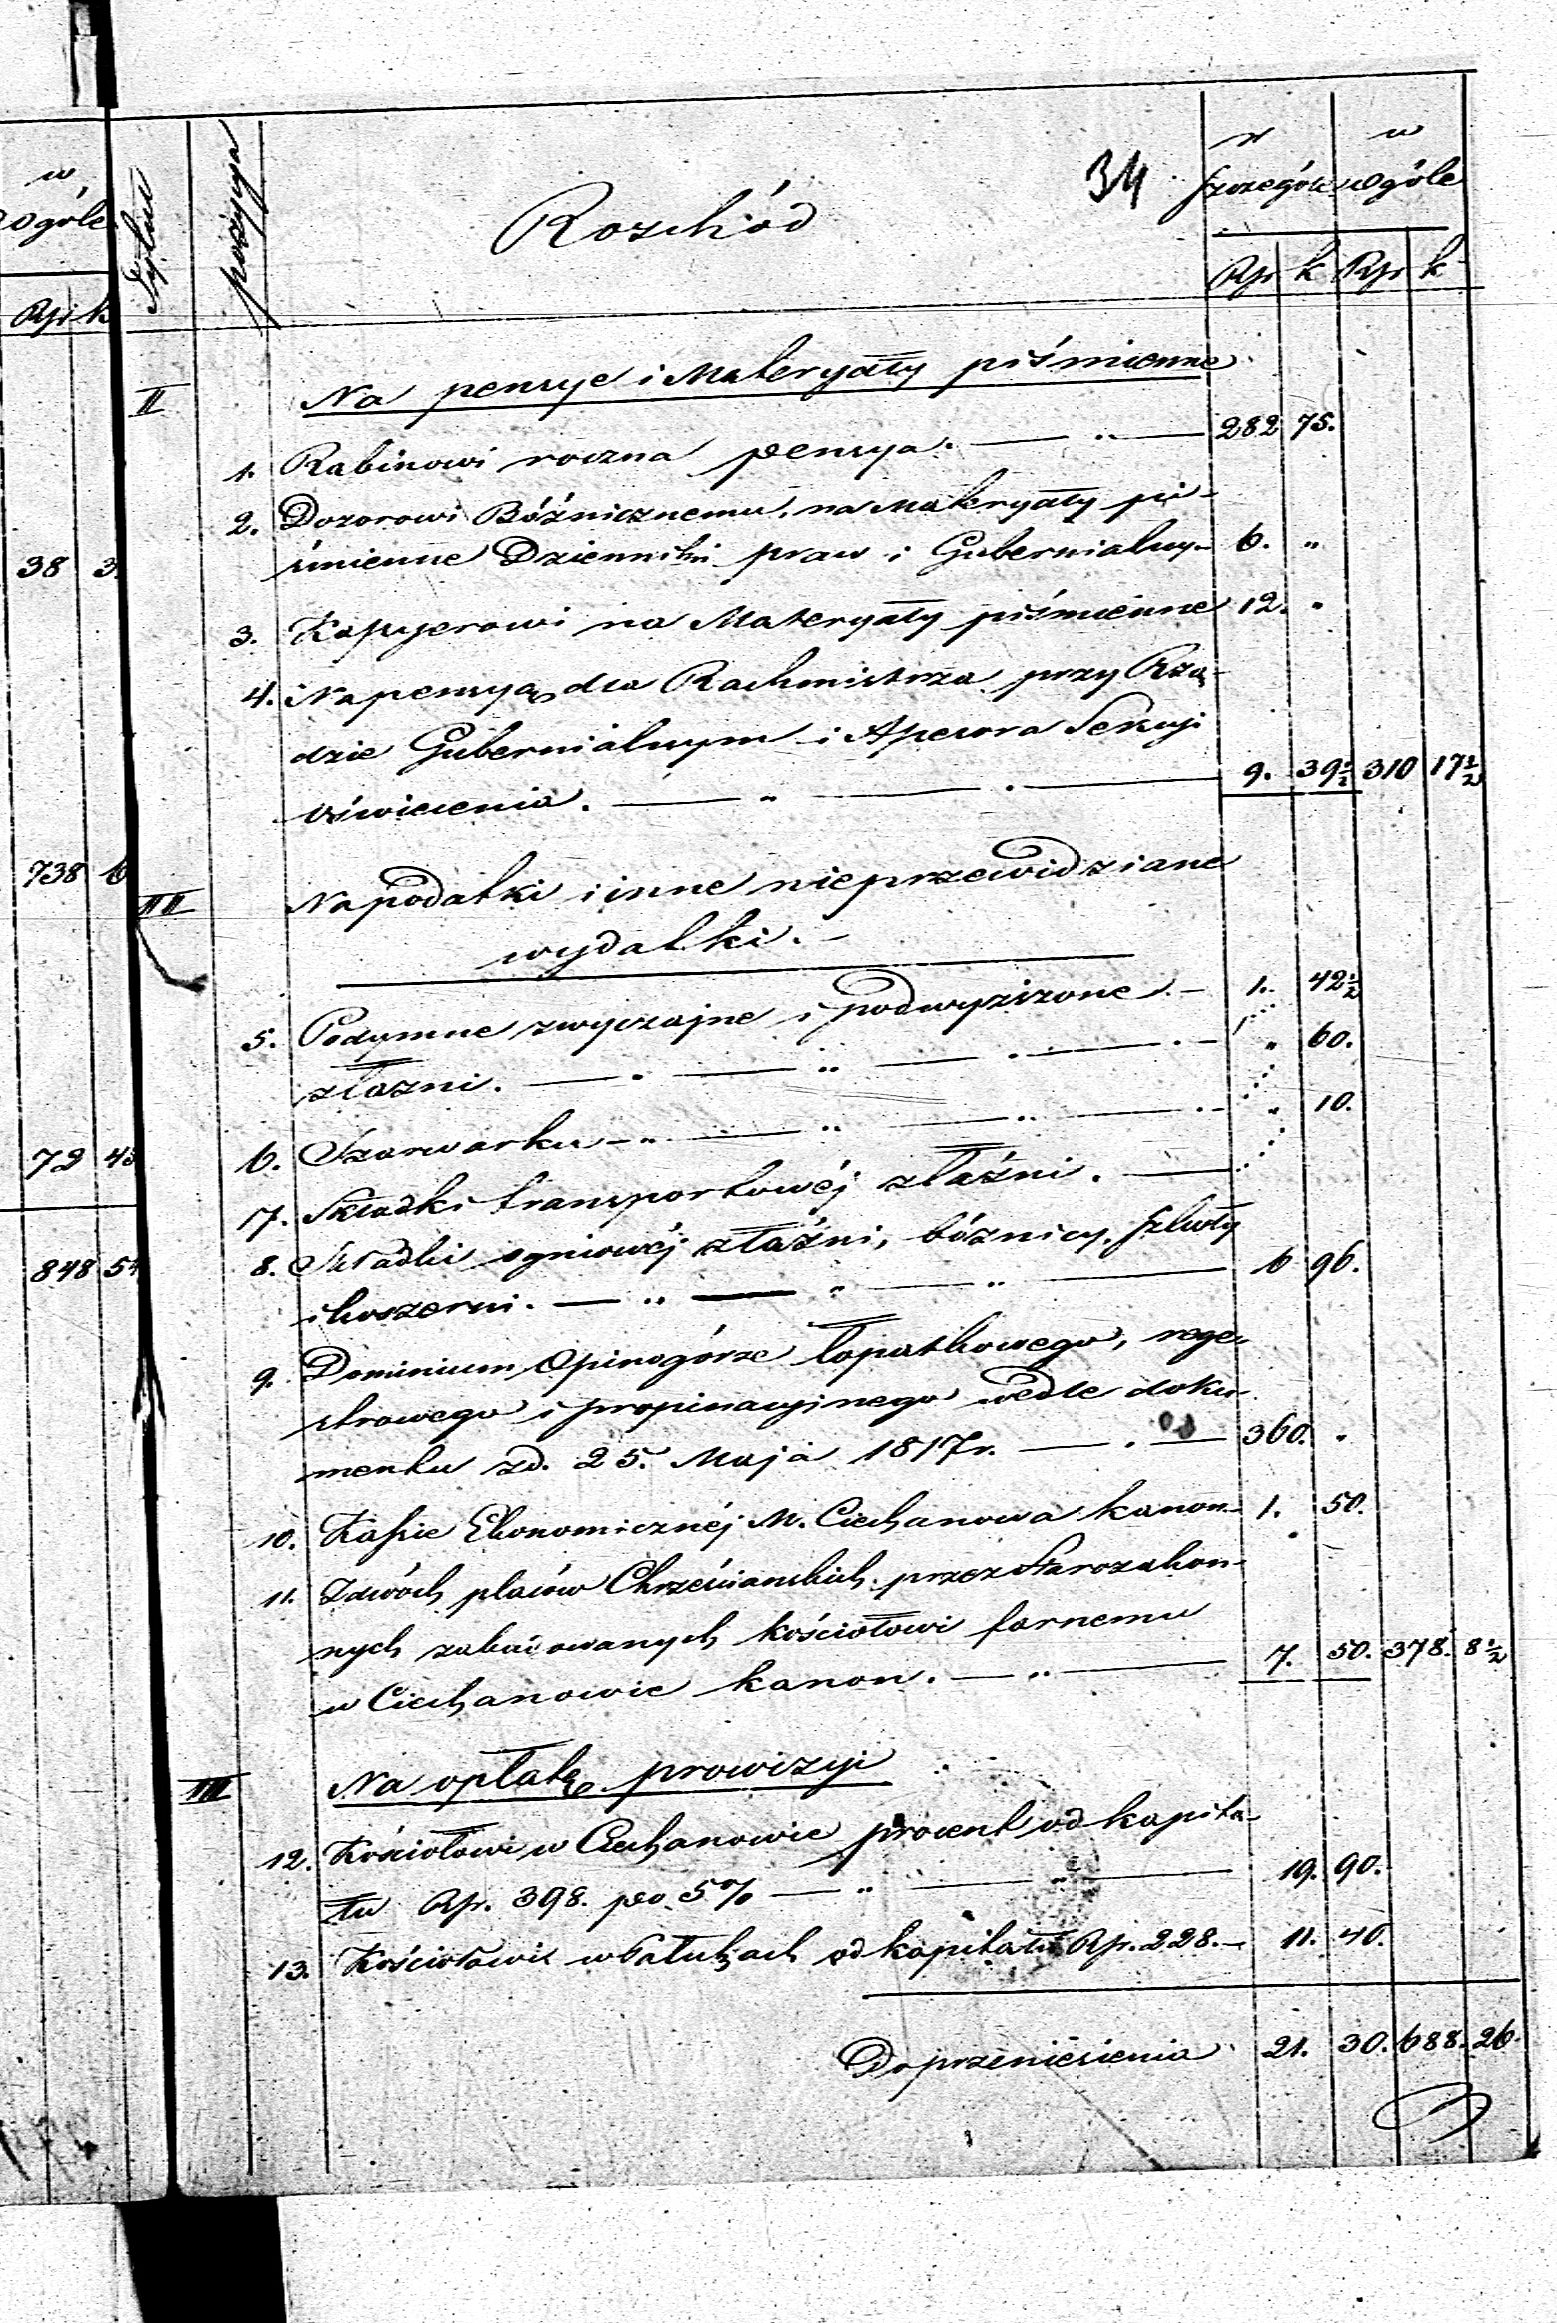 w
wgóle
Rsr k
38 3
738 6
72 43
848 54
Tytuł
pozycya
Rozchód
34
w Szczególe
w wgóle
Rsr k Rsr k
II Na pensye i Materyały piśmienne
1. Rabinowi roczna pensya. 282 75.
2. Dozorowi Bóżnicznemu, na Materyały pi-
śmienne Dzienniki praw i Gubernialny 6. "
3. Kassyerowi na Materyały piśmienne 12. "
4. Na pensyą dla Rachmistrza przy Rzą-
dzie Gubernialnym i Assesora Sekcyi
oświecenia. 9. 39½ 310 17½
III Na podatki i inne nieprzewidziane
wydatki.
5. Podymne zwyczajne i podwyższone 1. 42½
złaźni. " 60.
6. Szarwarku " 10.
7. Składki transportowéj złaźni.
8. Składki ogniowéj złaźni, bóźnicy, szkoły
i koszerni. 6 96.
9. Dominium Opinogórze łopatkowego, rege-
strowego i propinacyjnego wedle doku-
mentu zd. 25. Maja 1817r. 360. "
10. Kassie Ekonomicznéj M. Ciechanowa kanon 1. 50.
11. Zdwóch placów Chrześcianskich przez Starozakon-
nych zabudowanych kościołowi farnemu
w Ciechanowie kanon. 7. 50. 378. 8½
IIII Na opłatę prowizyi
12. Kościołowi w Ciechanowie procent od kapita-
łu Rsr. 398. po 5% 19. 90.
13. Kościołowi w od kapitału Rsr. 228. 11. 40.
Do przeniesienia 21. 30. 688. 26.